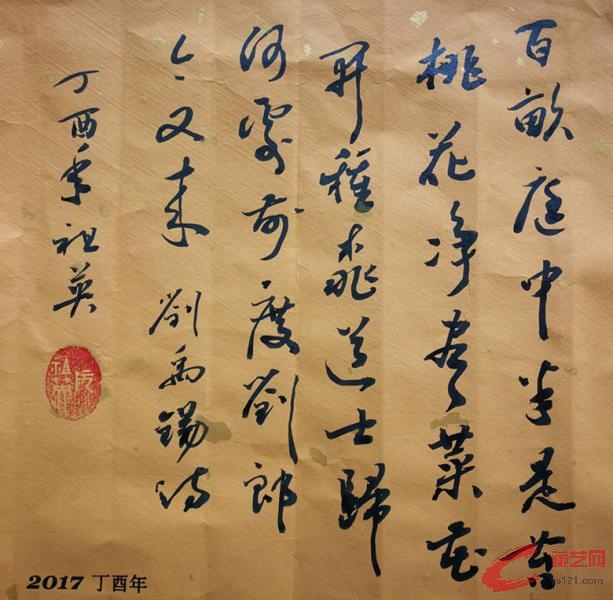 百畝庭中半是苔
桃花净盡菜花
開種桃道士歸
何處前度劉郎
今又来 劉禹錫詩
丁酉年祖英
2017 丁酉年